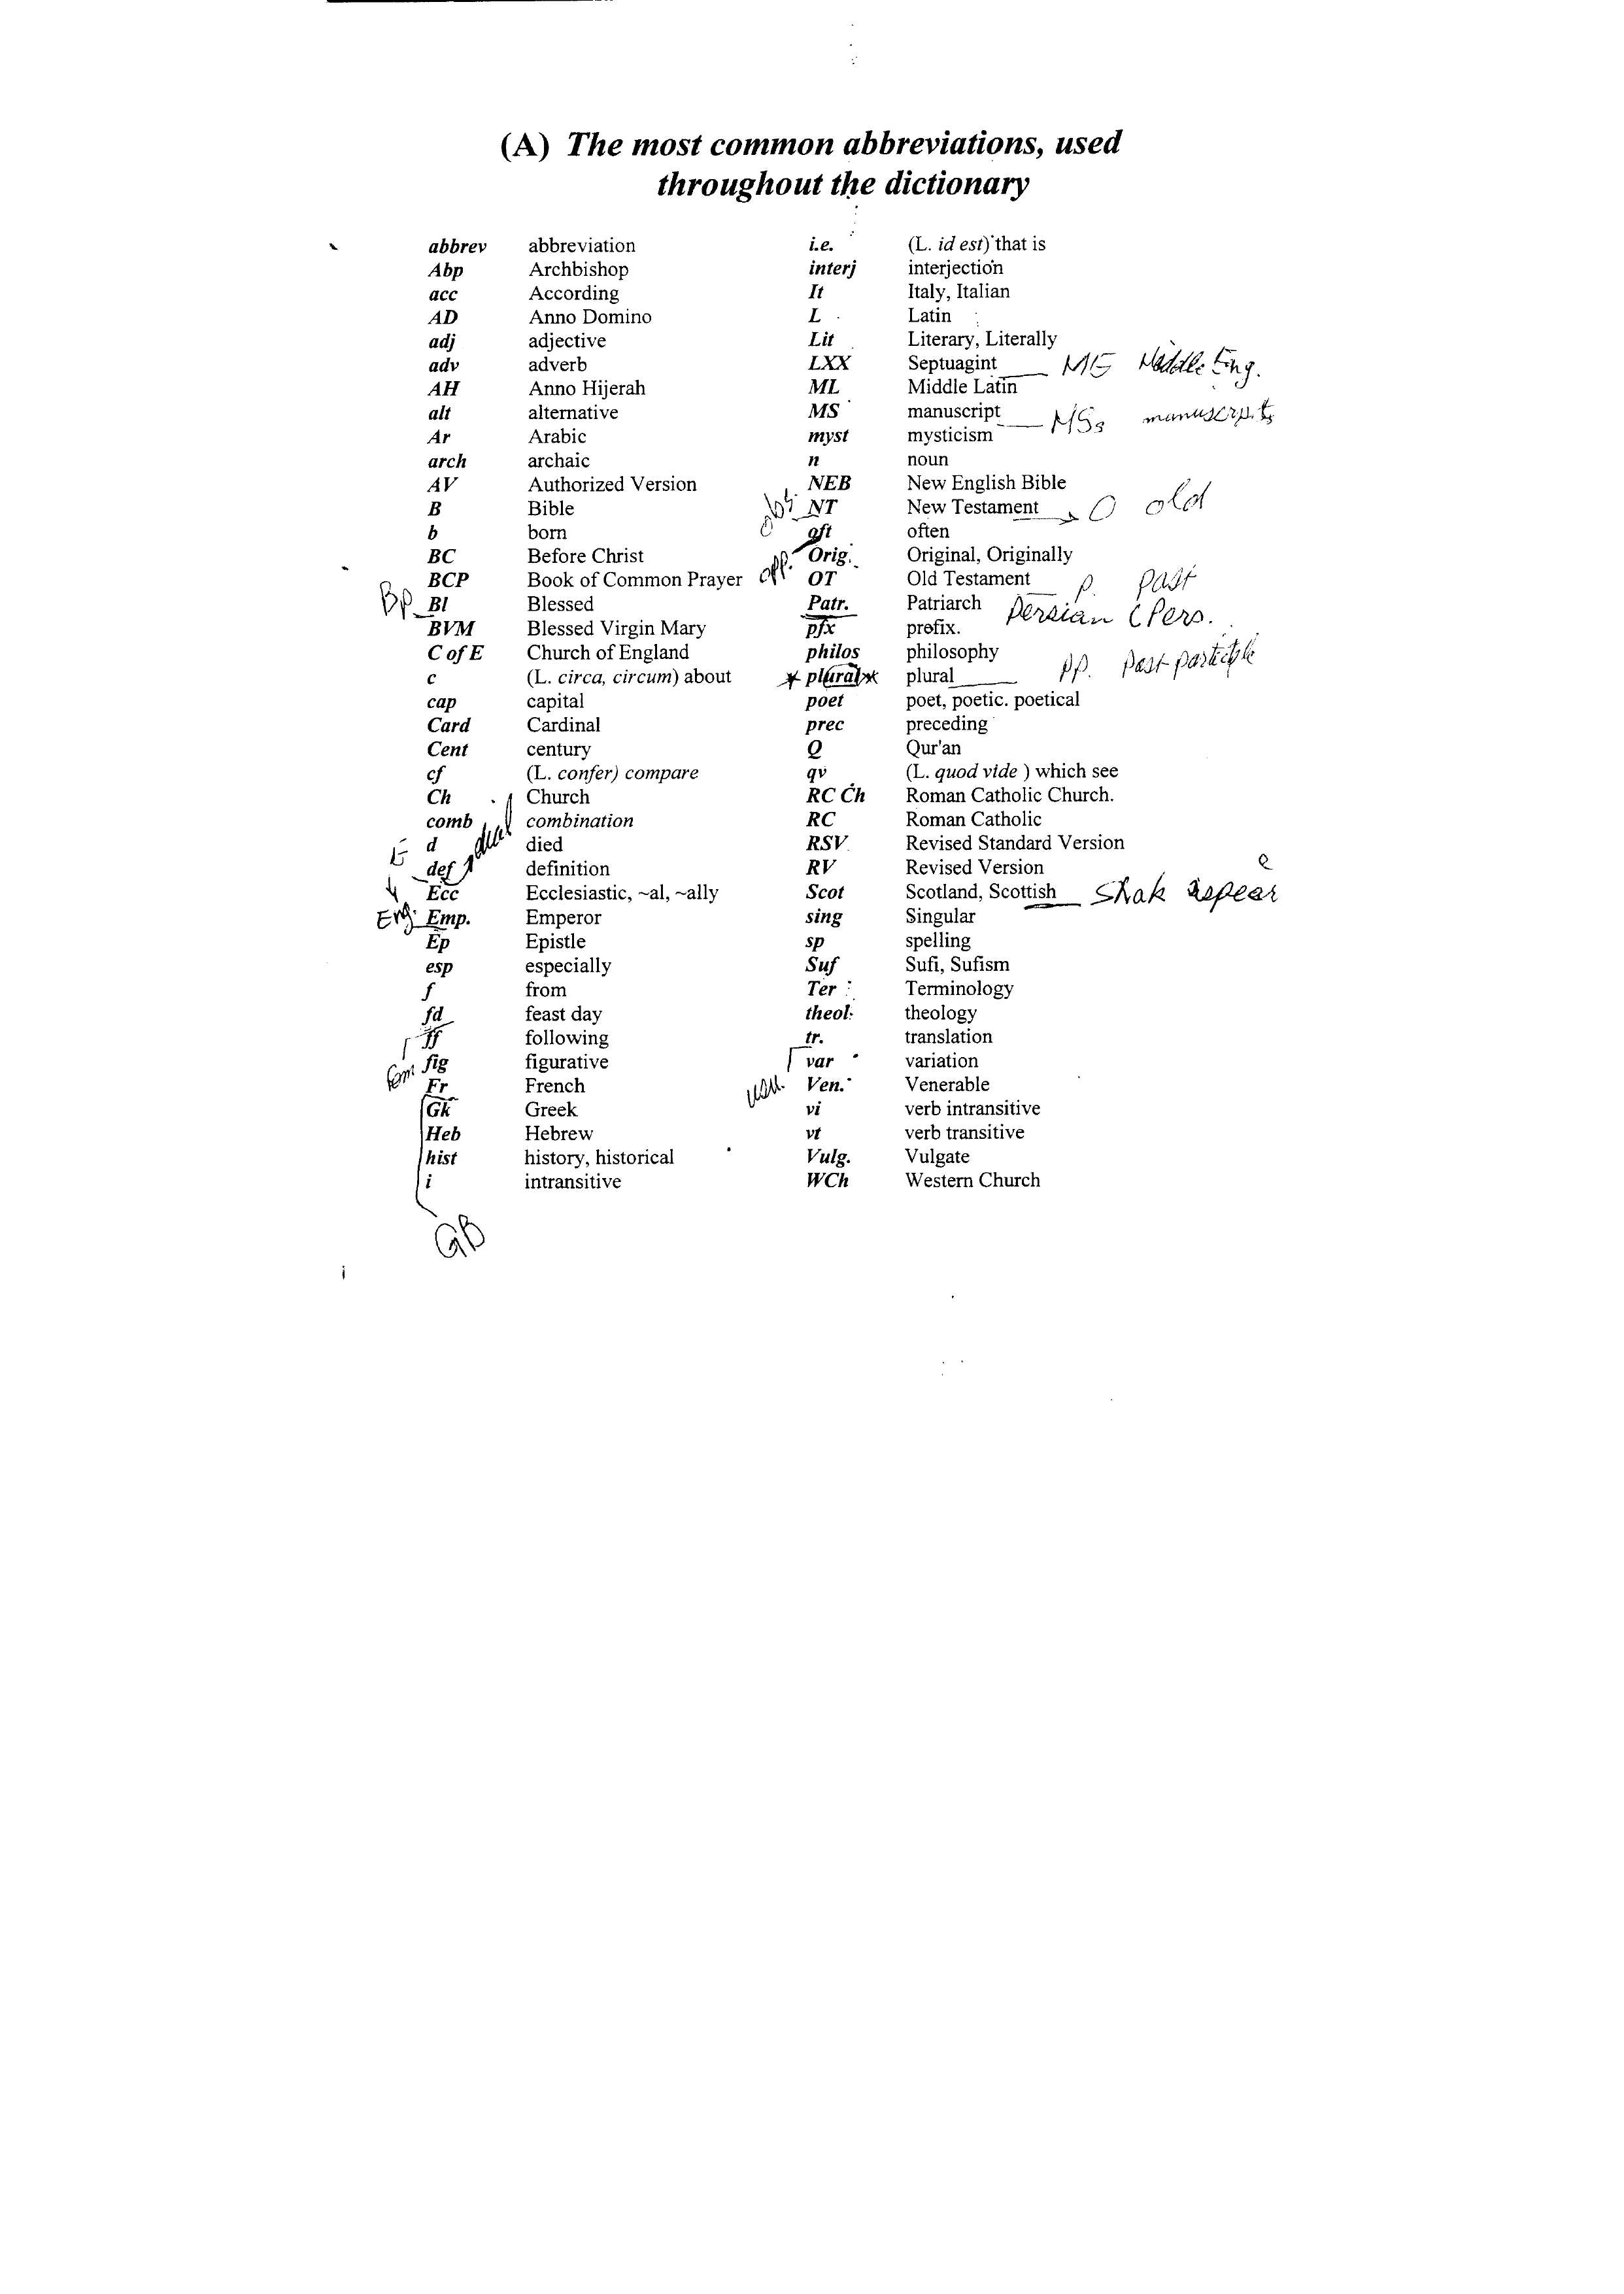 (A) The most common abbreviations, used
throughout the dictionary
abbrev abbreviation
Abp Archbishop
acc According
AD Anno Domino
adj adjective
adv adverb
AH Anno Hijerah
alt alternative
Ar Arabic
arch archaic
AV Authorized Version
B Bible
b born
BC Before Christ
BCP Book of Common Prayer
Bp
Bl Blessed
BVM Blessed Virgin Mary
C of E Church of England
c (L. circa, circum) about
cap capital
Card Cardinal
Cent century
cf (L. confer) compare
Ch Church
comb combination
dual
d died
E
def definition
Ecc Ecclesiastic, ~al, ~ally
Eng.
Emp. Emperor
Ep Epistle
esp especially
f from
fd feast day
ff following
fem
fig figurative
Fr French
Gk Greek
Heb Hebrew
hist history, historical
i intransitive
GB
i.e. (L. id est) that is
interj interjection
It Italy, Italian
L Latin
Lit Literary, Literally
LXX Septuagint
ME Middle Eng.
ML Middle Latin
MS manuscript
MSs manuscripts
myst mysticism
n noun
NEB New English Bible
obs.
NT New Testament
O old
oft often
opp.
Orig. Original, Originally
OT Old Testament
p. past
Patr. Patriarch
Persian (Pers.
pfx prefix.
philos philosophy
plural plural
pp. past participle
poet poet, poetic. poetical
prec preceding
Q Qur'an
qv (L. quod vide ) which see
RC Ch Roman Catholic Church.
RC Roman Catholic
RSV Revised Standard Version
RV Revised Version
Scot Scotland, Scottish
Shakespear
sing Singular
sp spelling
Suf Sufi, Sufism
Ter Terminology
theol. theology
tr. translation
usu.
var variation
Ven. Venerable
vi verb intransitive
vt verb transitive
Vulg. Vulgate
WCh Western Church
i